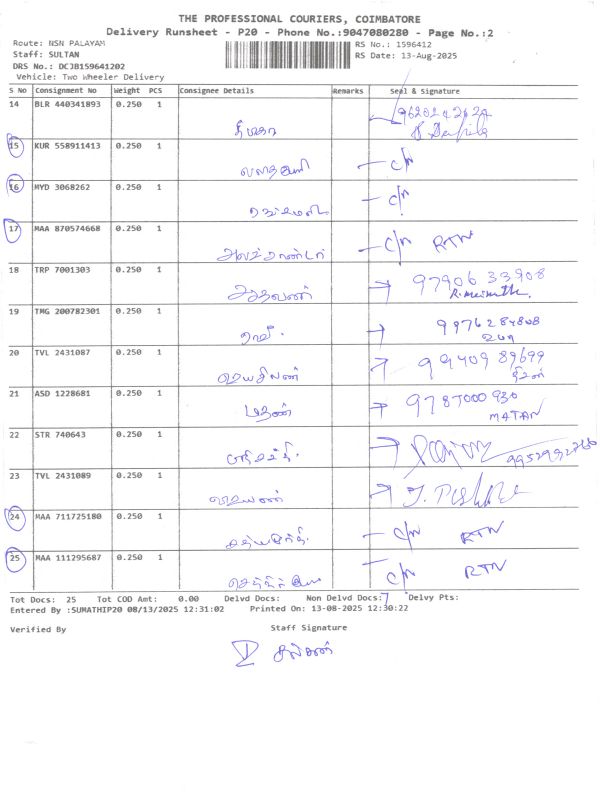 THE PROFESSIONAL COURIERS, COIMBATORE
Delivery Runsheet - P20 - Phone No.:9047080280 - Page No.:2
Route: NSN PALAYAM RS No.: 1596412
Staff: SULTAN RS Date: 13-Aug-2025
DRS No.: DCJB159641202
Vehicle: Two Wheeler Delivery
S No Consignment No Weight PCS Consignee Details Remarks Seal & Signature
14 BLR 440341893 0.250 1
15 KUR 558911413 0.250 1 C/N
16 MYD 3068262 0.250 1 C/N
17 MAA 870574668 0.250 1 C/N RTN
18 TRP 7001303 0.250 1 97906 33908
ஆதவன்
19 TMG 200782301 0.250 1 9976284808
ரவி.
20 TVL 2431087 0.250 1 99409 89699
ஜெயசீலன்
21 ASD 1228681 0.250 1 9787000930
மதன் MATAN
22 STR 740643 0.250 1
23 TVL 2431089 0.250 1
24 MAA 711725180 0.250 1 C/N RTN
25 MAA 111295687 0.250 1 C/N RTN
Tot Docs: 25 Tot COD Amt: 0.00 Delvd Docs: Non Delvd Docs: 7 Delvy Pts:
Entered By :SUMATHIP20 08/13/2025 12:31:02 Printed On: 13-08-2025 12:30:22
Verified By Staff Signature